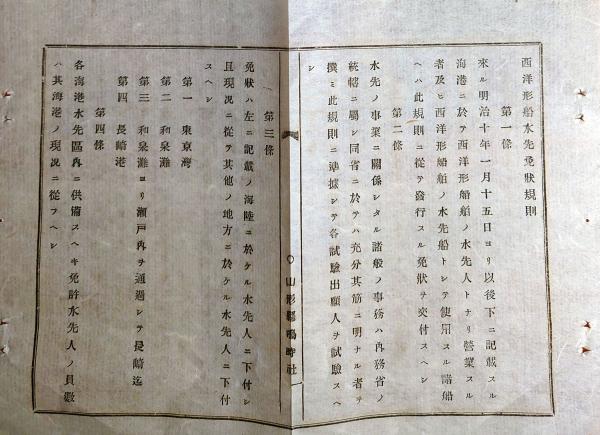 西洋形船水先免狀規則
第一條
來ル明治十年一月十五日ヨリ以後下ニ記載スル
海港ニ於テ西洋形船舶ノ水先人トナリ營業スル
者及ヒ西洋形船舶ノ水先船トシテ使用スル諸船
ヘハ此規則ニ從テ發行スル免狀ヲ交付スヘシ
第二條
水先ノ事業ニ關係シタル諸般ノ事務ハ內務省ノ
統轄ニ屬シ同省ニ於テハ充分其筋ニ明ナル者ヲ
撰ミ此規則ニ準據シテ各試驗出願人ヲ試驗スヘ
シ
〇山形縣鳴時社
第三條
免狀ハ左ニ記載ノ海陸ニ於ケル水先人ニ下付シ
且現況ニ從テ其他ノ地方ニ於ケル水先人ニ下付
スヘシ
第一 東京灣
第二 和泉灘
第三 和泉灘ヨリ瀨戶內ヲ通過シテ長崎迄
第四 長崎港
第四條
各海港水先區內ニ供備スヘキ免許水先人ノ員數
ハ其海港ノ現況ニ從フヘシ